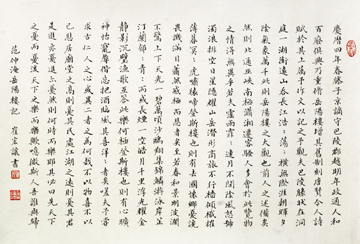 慶曆四年春滕子京謫守巴陵郡越明年政通人和
百廢俱興乃重修岳陽樓增其舊制刻唐賢今人詩
賦於其上屬予作文以記之予觀夫巴陵勝狀在洞
庭一湖銜遠山吞長江浩浩蕩蕩橫無際涯朝暉夕
陰氣象萬千此則岳陽樓之大觀也前人之述備矣
然則北通巫峽南極瀟湘遷客騷人多會於此覽物
之情得無異乎若夫霪雨霏霏連月不開陰風怒號
濁浪排空日星隱耀山岳潛形商旅不行檣傾楫摧
薄暮冥冥虎嘯猿啼登斯樓也則有去國懷鄉憂讒
畏譏滿目蕭然感極而悲者矣至若春和景明波瀾
不驚上下天光一碧萬頃沙鷗翔集錦鱗游泳岸芷
汀蘭郁郁青青而或長煙一空皓月千里浮光耀金
靜影沉璧漁歌互答此樂何極登斯樓也則有心曠
神怡寵辱偕忘把酒臨風其喜洋洋者矣嗟夫予嘗
求古仁人之心或異二者之為何哉不以物喜不以
己悲居廟堂之高則憂其民處江湖之遠則憂其君
是進亦憂退亦憂然則何時而樂耶其必曰先天下
之憂而憂後天下之樂而樂歟噫微斯人吾誰與歸
范仲淹岳陽樓記 崔宏讖書